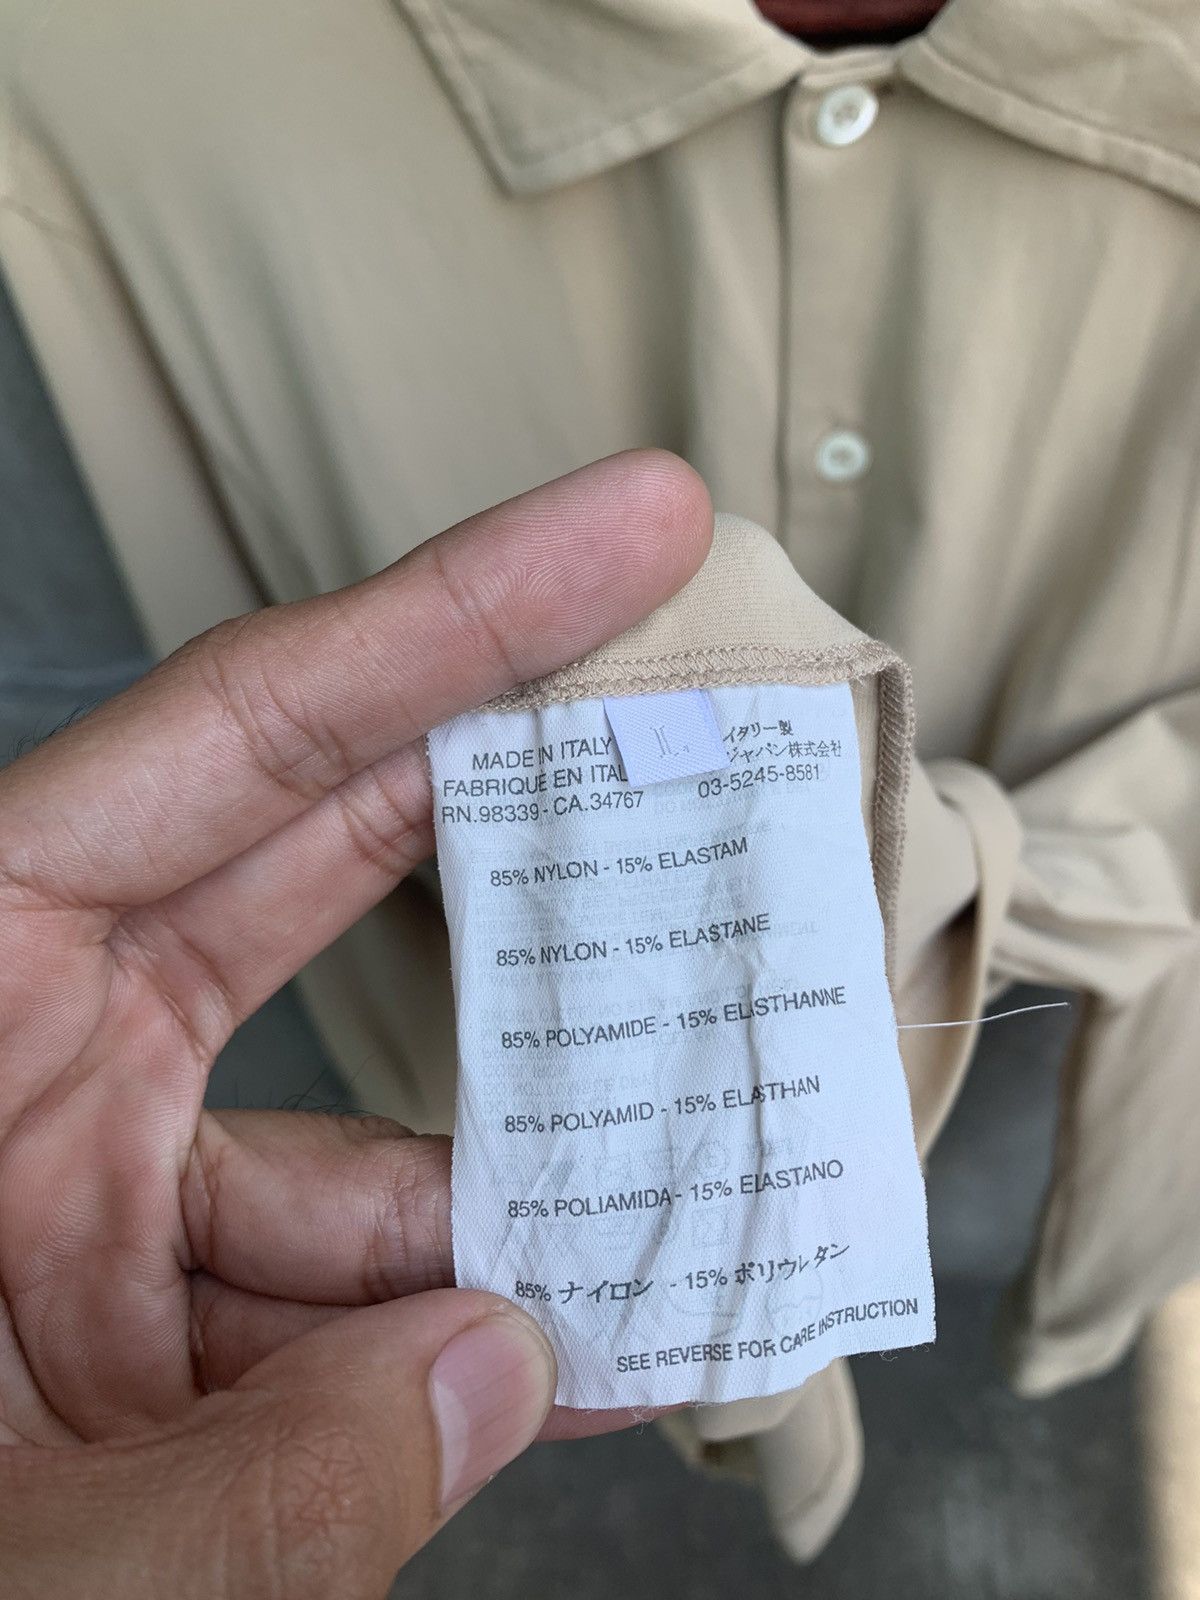 MADE IN ITALY
イタリー製
FABRIQUE EN ITAL
ジャパン株式会社
RN.98339 - CA.34767
03-5245-8581
L
85% NYLON - 15% ELASTAM
85% NYLON - 15% ELASTANE
85% POLYAMIDE - 15% ELISTHANNE
85% POLYAMID - 15% ELASTHAN
85% POLIAMIDA - 15% ELASTANO
85% ナイロン - 15% ポリウレタン
SEE REVERSE FOR CARE INSTRUCTION